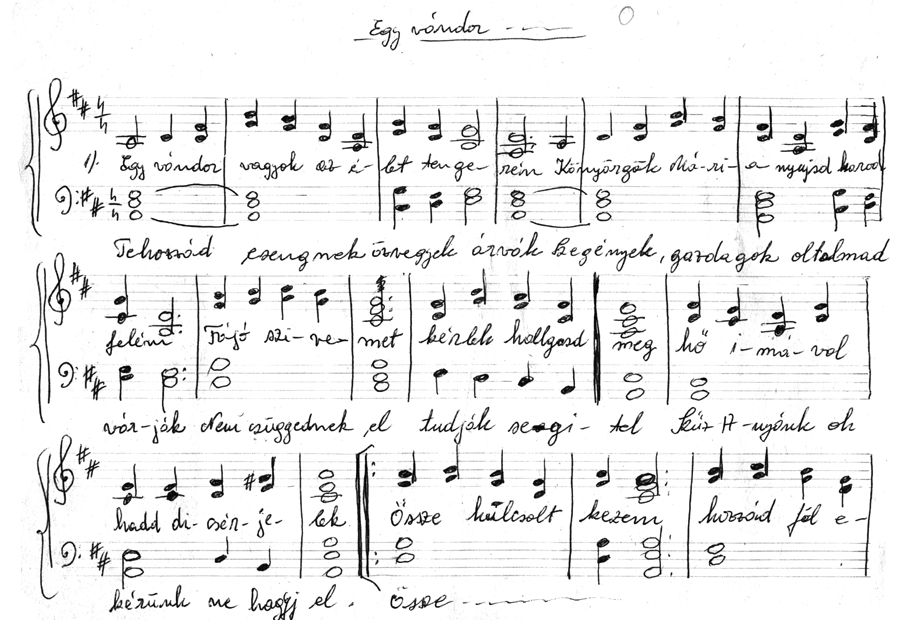 Egy vándor
1). Egy vándor vagyok az é-let tenge-rén Könyörgök Má-ri-a nyujsd karod
Tehozzád esengnek özvegyek árvák Szegények, gazdagok oltalmad
felém Fájó szi-ve-met kérlek hallgasd meg hő i-má-val
vár-ják Nem csüggednek el tudják segi-tel Szüz A-nyánk óh
hadd di-csér-je-lek Össze kulcsolt kezem hozzád fel e-
kérünk ne hagyj el. Össze